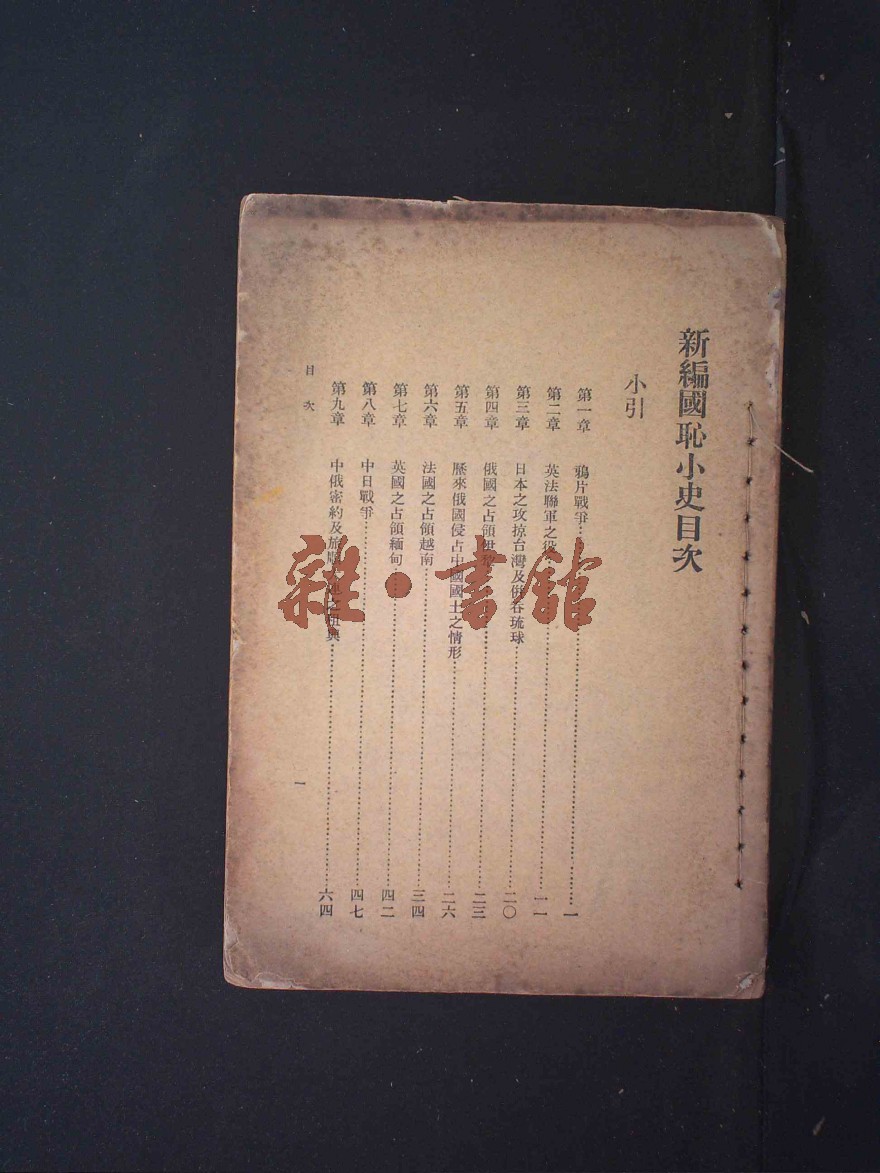 新編國恥小史目次
小引
第一章　鴉片戰爭……一
第二章　英法聯軍之役……一一
第三章　日本之攻掠台灣及併吞琉球……二〇
第四章　俄國之占領……二三
第五章　歷來俄國侵占中國國土之情形……二六
第六章　法國之占領越南……三四
第七章　英國之占領緬甸……四二
第八章　中日戰爭……四七
第九章　中俄密約及旅順……六四
目次
一
雜·書館